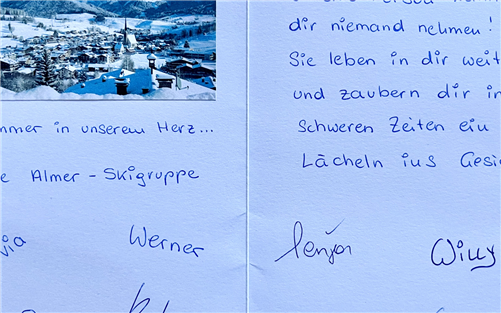 mmer in unserem Herz...
e Almer - Skigruppe
via Werner
dir niemand nehmen!
Sie leben in dir weit
und zaubern dir in
schweren Zeiten ein
Lächeln ins Gesi
Willy